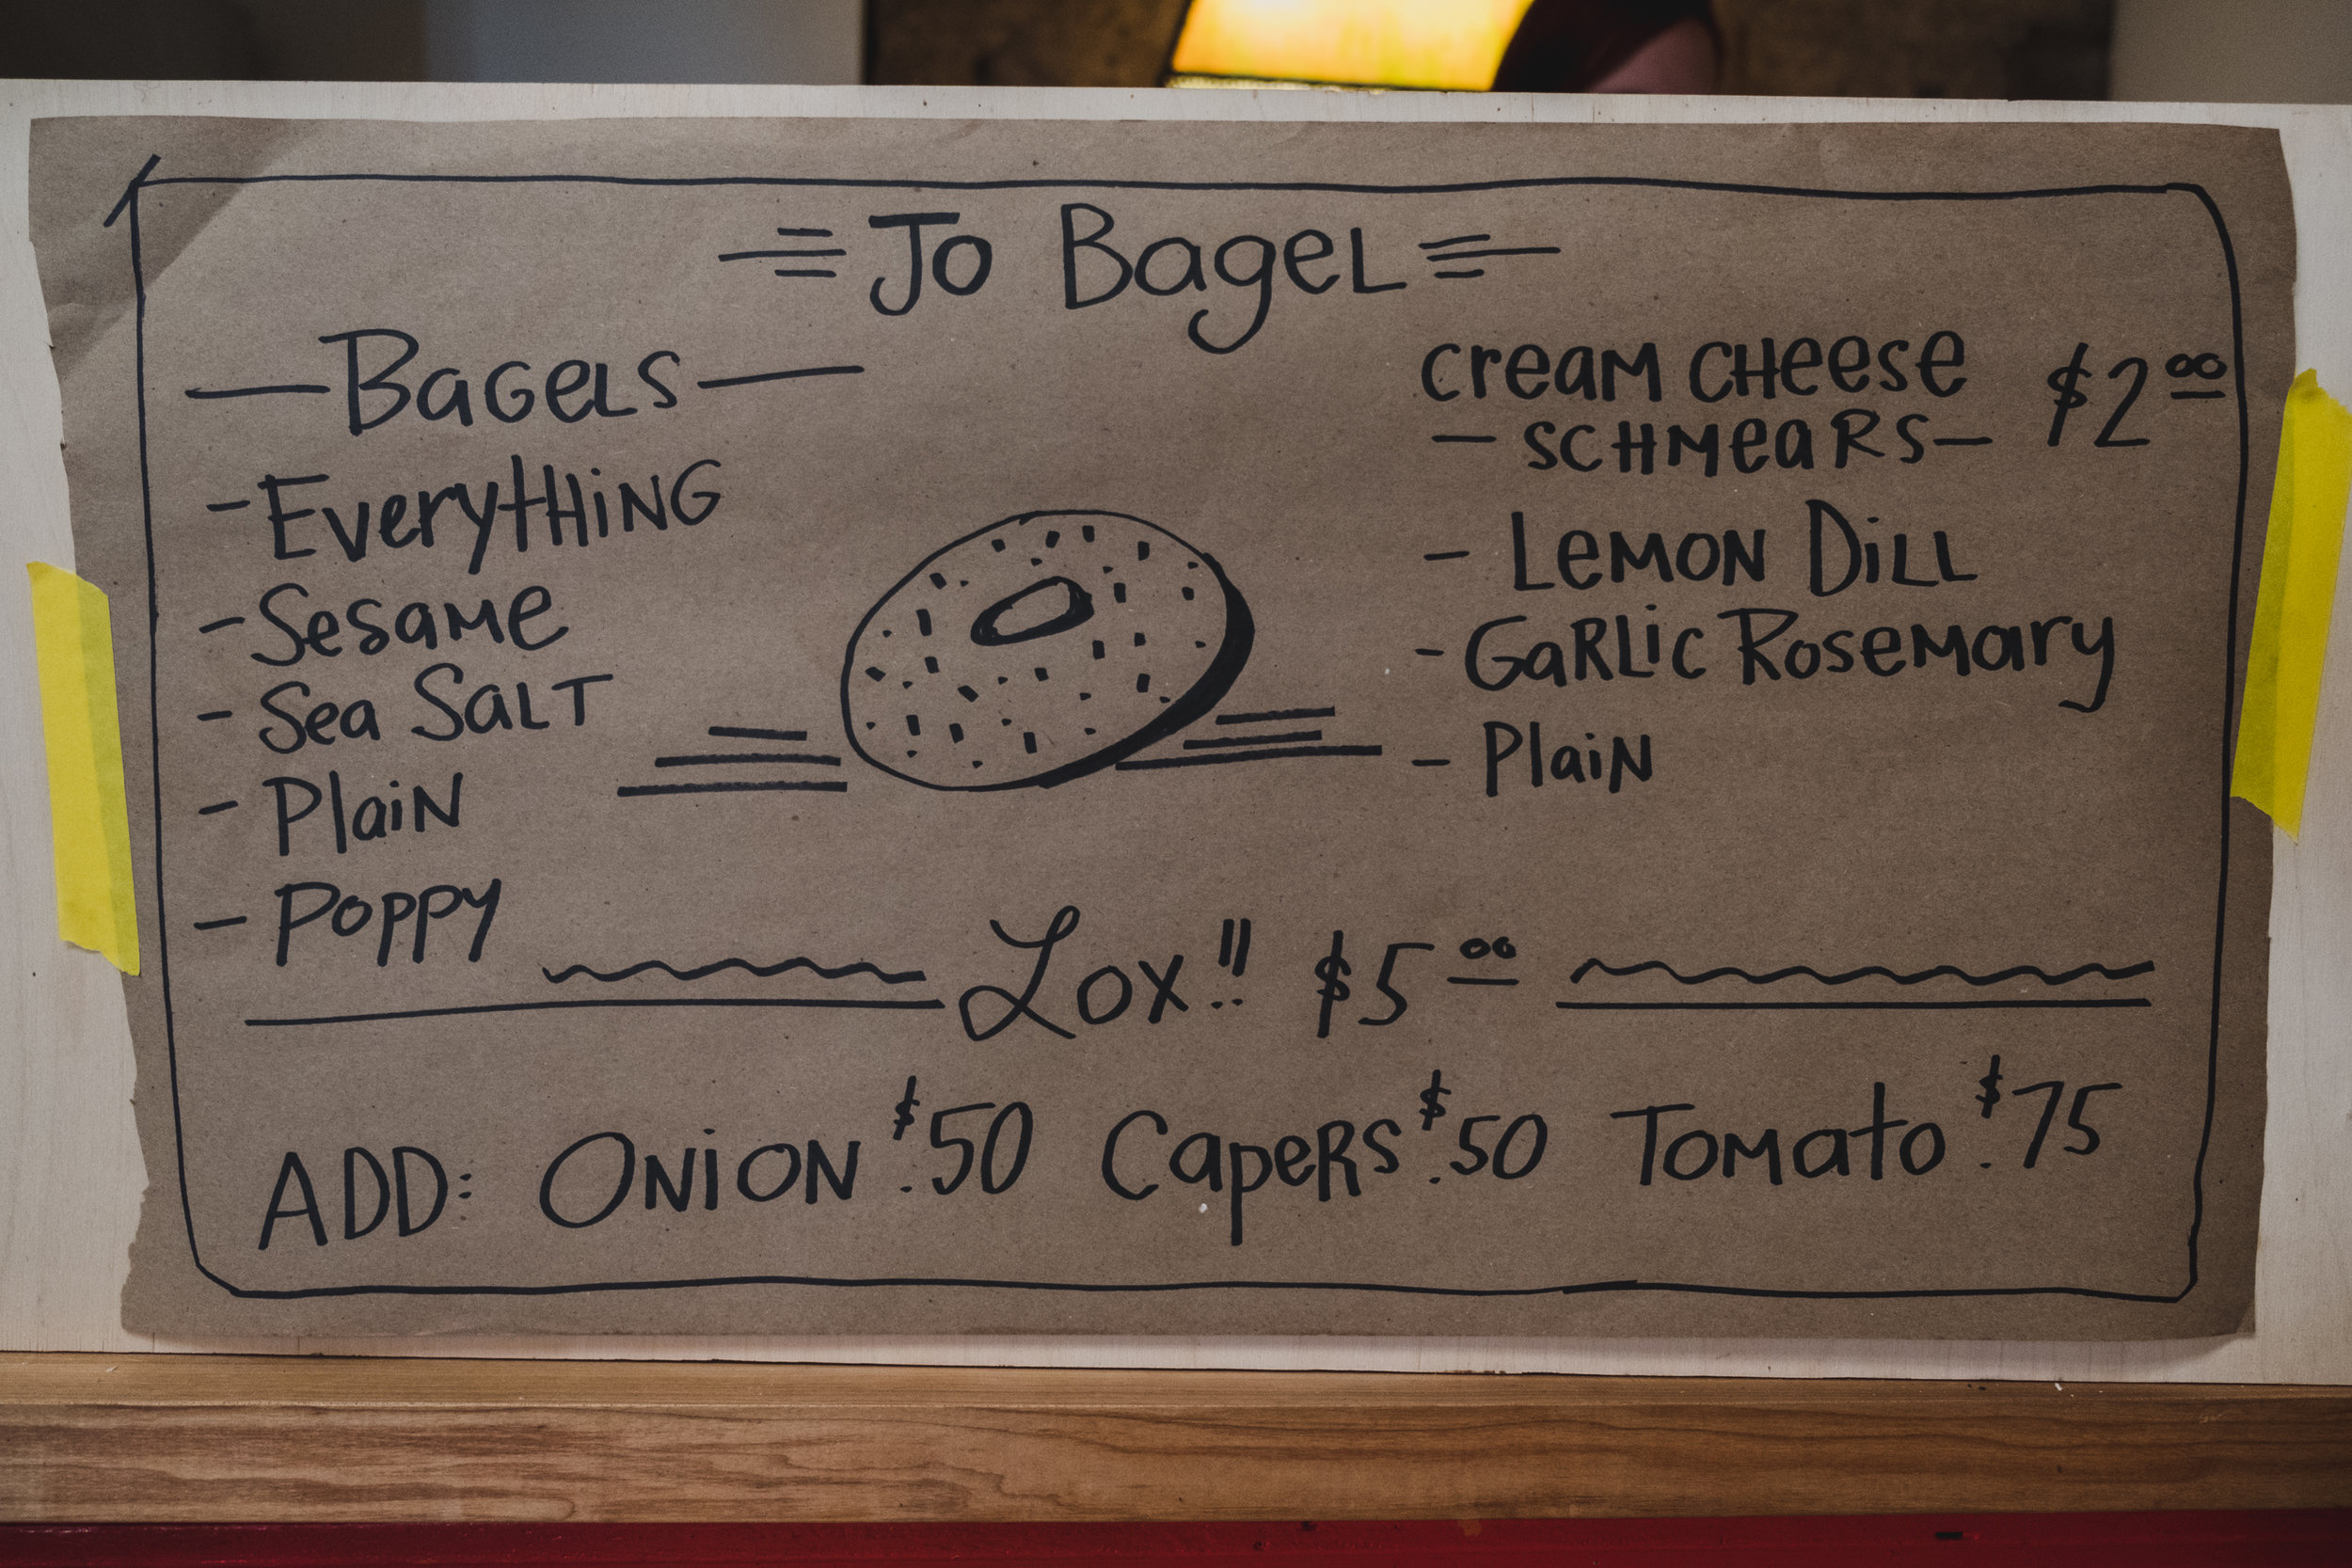 Jo Bagel
Bagels
- Everything
- Sesame
- Sea Salt
- Plain
- Poppy
Cream Cheese $2.00
- Schmears -
- Lemon Dill
- Garlic Rosemary
- Plain
Lox!! $5.00
ADD: Onion $.50 Capers $.50 Tomato $.75